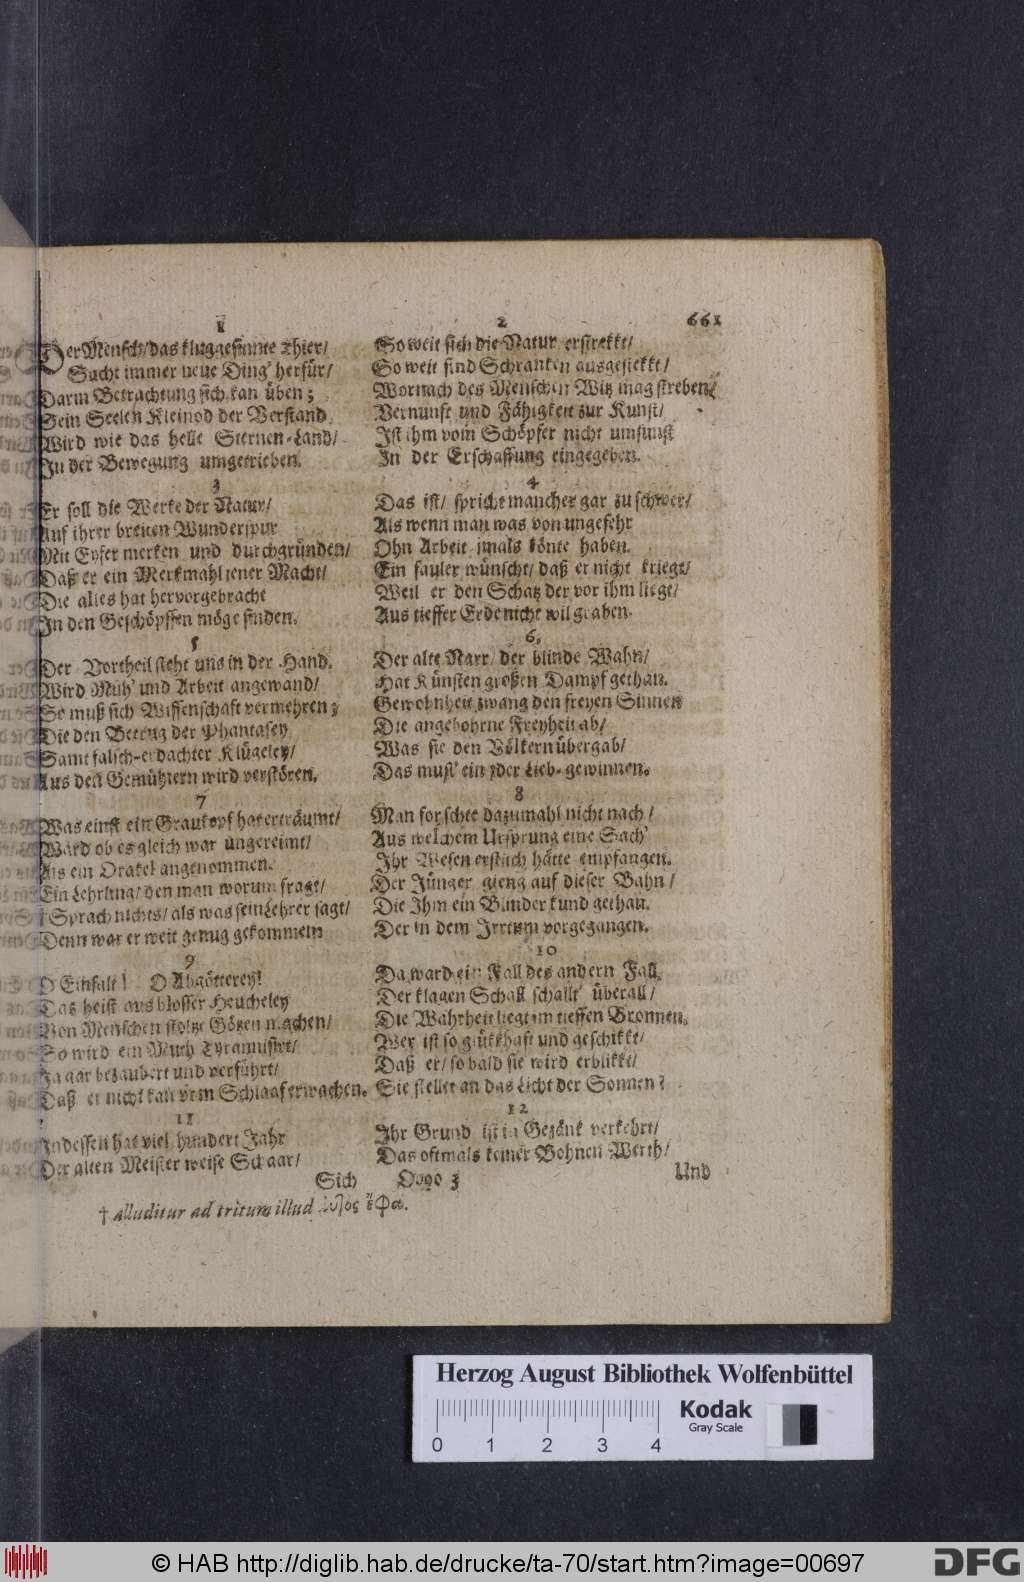 661
1
Der Mensch/das kluggesinnte Thier/
Sucht immer neue Ding' herfür/
Darin Betrachtung sich kan üben;
Sein Seelen Kleinod der Verstand
Wird wie das helle Sternen-Land/
In der Bewegung umgetrieben.
2
So weit sich die Natur erstrekkt/
So weit sind Schranken ausgestekkt/
Wornach des Menschen Witz mag streben/
Vernunft und Fähigkeit zur Kunst/
Ist ihm vom Schöpfer nicht umsunst
In der Erschaffung eingegeben.
3
Er soll die Werke der Natur/
Auf ihrer breiten Wunderspur
Mit Eyfer merken und durchgründen/
Daß er ein Merkmahl jener Macht/
Die alles hat hervorgebracht
In den Geschöpffen möge finden.
4
Das ist/ spricht mancher gar zu schwer/
Als wenn man was von ungefehr
Ohn Arbeit jmals könte haben.
Ein fauler wünscht/ daß er nicht kriegt/
Weil er den Schatz der vor ihm liegt/
Aus tieffer Erde nicht wil graben.
5
Der Vortheil steht uns in der Hand.
Wird Müh' und Arbeit angewand/
So muß sich Wissenschaft vermehren;
Die den Betrug der Phantasey
Samt falsch-erdachter Klügeley/
Aus den Gemühtern wird verstören.
6.
Der alte Narr/ der blinde Wahn/
Hat Künsten großen Dampf gethan.
Gewohnheit zwang den freyen Sinnen
Die angebohrne Freyheit ab/
Was sie den Völkern übergab/
Das must' ein jeder Lieb-gewinnen.
7
Was einst ein Graukopf hat erträumt/
Ward ob es gleich war ungereimt/
Als ein Orakel angenommen.
Ein Lehrling/ den man worum fragt/
† Sprach nichts/ als was sein Lehrer sagt/
Denn war er weit genug gekommen
8
Man forschte dazumahl nicht nach/
Aus welchem Ursprung eine Sach'
Ihr Wesen erstlich hätte empfangen.
Der Jünger gieng auf dieser Bahn/
Die Ihm ein Blinder kund gethan.
Der in dem Irrtum vorgegangen.
9
O Einfalt! O Abgötterey!
Das heist aus blosser Heucheley
Von Menschen stoltze Götzen machen/
So wird ein Muth Tyrannisirt/
Ja gar bezaubert und verführt/
Daß er nicht kan vom Schlaaf erwachen.
10
Da ward ein Fall des andern Fall,
Der klagen Schall schallt' überall/
Die Wahrheit liegt im tieffen Bronnen.
Wer ist so glükkhaft und geschikkt/
Daß er/ so bald sie wird erblikkt/
Sie stellet an das Licht der Sonnen?
11
Indessen hat viel hundert Jahr
Der alten Meister weise Schaar/
12
Ihr Grund ist in Gezänk verkehrt/
Das oftmals keiner Bohnen Werth/
Sich Oooo 3 Und
† alluditur ad tritum illud Αυτὸς ἔφα.
Herzog August Bibliothek Wolfenbüttel
0 1 2 3 4
Kodak
Gray Scale
© HAB http://diglib.hab.de/drucke/ta-70/start.htm?image=00697
DFG